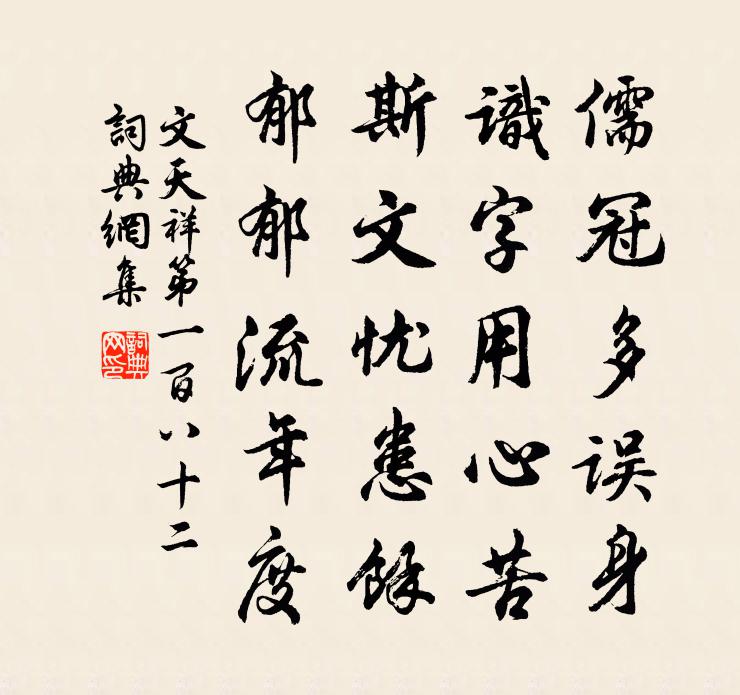 儒冠多误身
識字用心苦
斯文忧患餘
郁郁流年度
文天祥第一百八十二
詞典網集
詞典网印